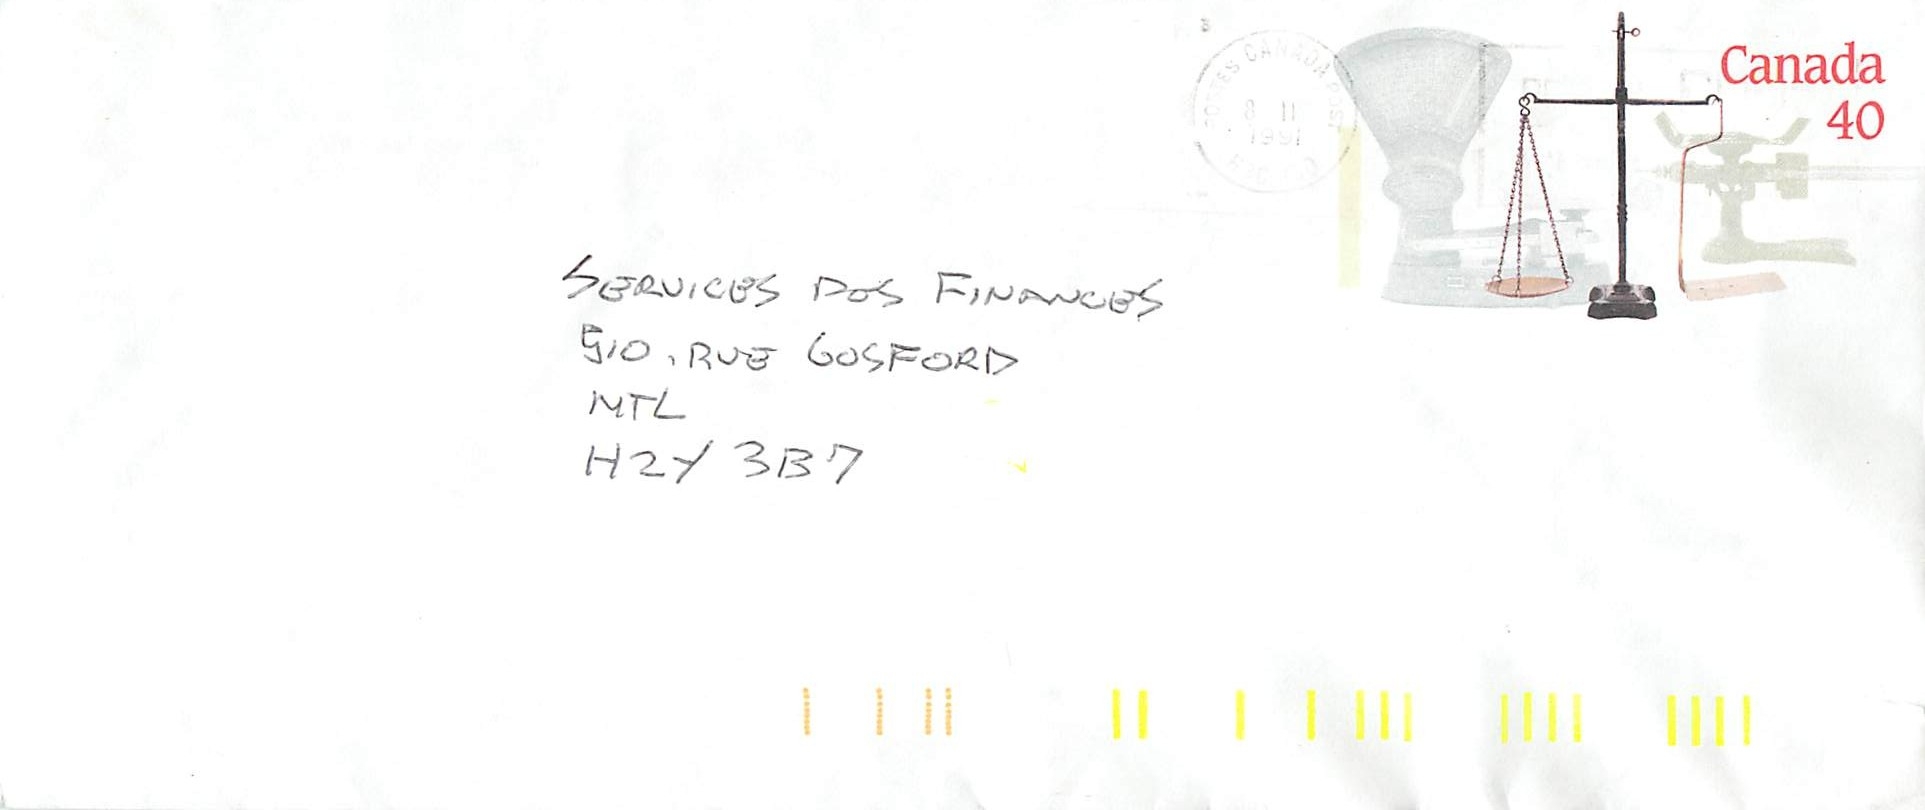 POSTES CANADA POST
8 II
1991
Canada
40
SERVICES DES FINANCES
510, RUE GOSFORD
MTL
H2Y 3B7